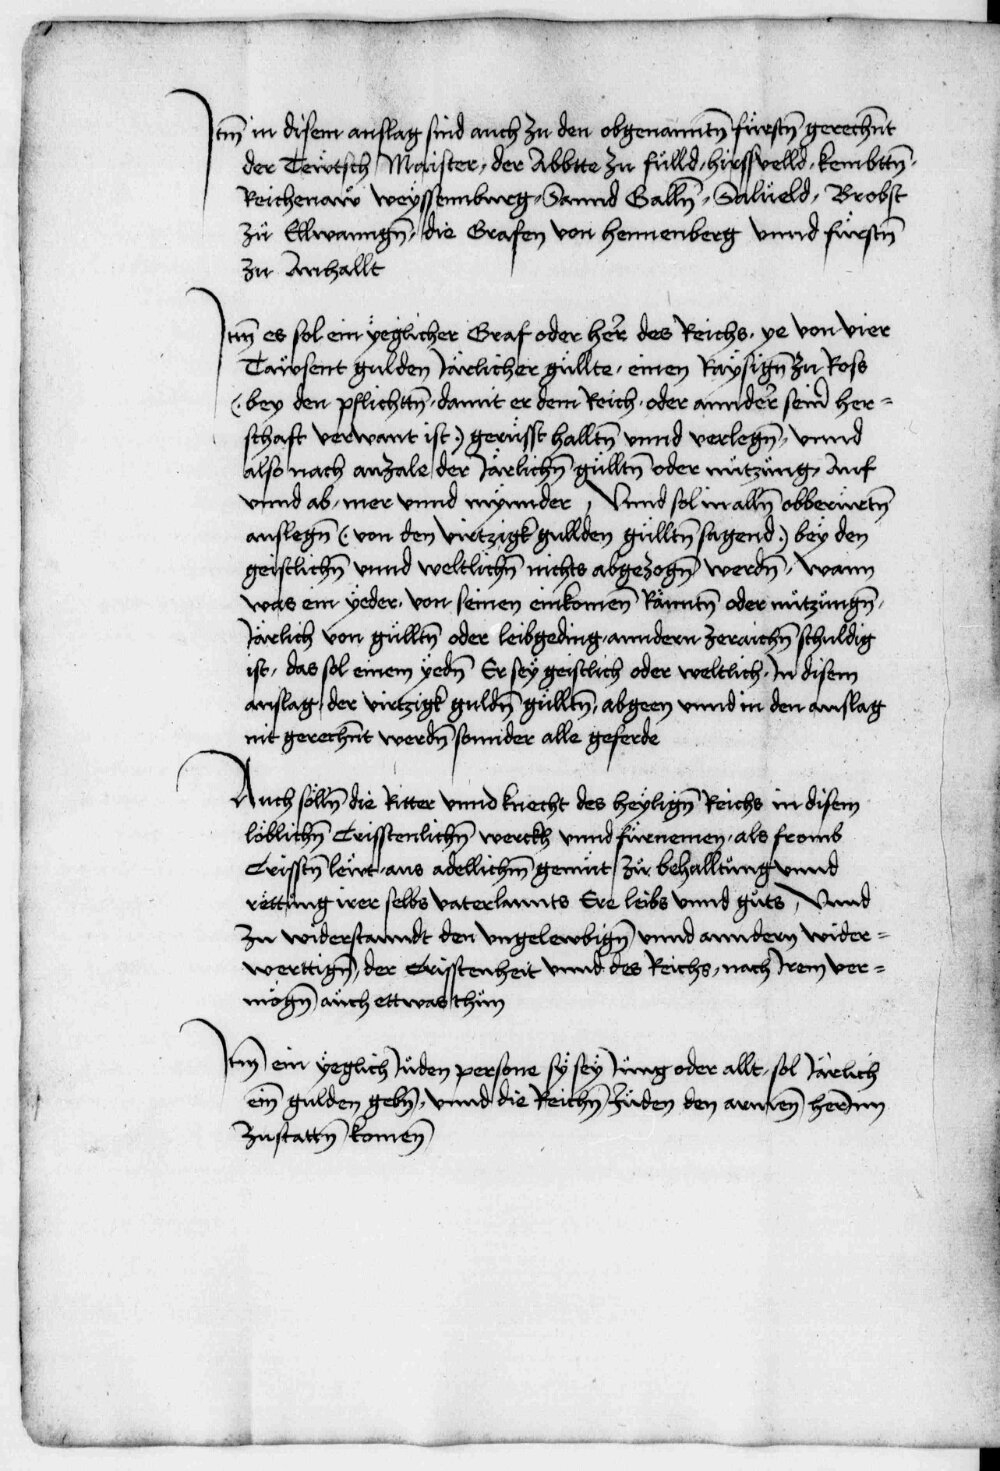 Itm̄ in disem anslag sind auch zu den obgenanntn̄ fürstn̄ gerechn̄t
der Teẅtsch Maister, der Abbte zu fulld, hirssvelld, kembttn̄,
Reichenaẅ weyssennburg, Sannd Galln̄, Salueld, Brobst
zu Ellwanngn̄, die Grafen von hennenberg vnnd fürstn̄
zu Anhallt
Itm̄ es sol ein ÿeglicher Graf oder her̄ des Reichs, ye von vier
Tawsent gulden Järlicher güllte, einen Raÿsign̄ zu Ross
(: bey den pflichttn̄, damit er dem Reich, oder annder̄ sein̄ her=
schaft verwant ist :) gerüsst halltn̄ vnnd verlegn̄, vnnd
also nach anzale der Järlichn̄ gülltn̄ oder nützung, Auf
vnnd ab, mer vnnd mÿnnder, Vnnd sol in alln̄ obberürtn̄
anslegn̄ (: von den virtzigk gullden gülltn̄ sagend :) beÿ den
geistlichn̄ vnnd weltlichn̄ nichts abgezogn̄ werdn̄, Wann
was ein ÿeder, von seinen einkomen̄ Ränntn̄ oder nützungn̄,
Järlich von gülltn̄ oder leibgeding, anndern zeraichn̄ schuldig
ist, das sol einem ÿedn̄ Er seÿ geistlich oder weltlich, In disem
anslag, der virtzigk guldn̄ gülltn̄, abgeen vnnd in den anslag
nit gerechn̄t werdn̄ sonnder alle geferde
Auch sölln̄ die Ritter vnnd knecht des heÿlign̄ Reichs in disem
löblichn̄ Cristenlichn̄ werckh vnnd fürnemen, als fromb
Cristn̄ leẅt, aus adellichm̄ gemüt, zu behalltung vnnd
rettung irer selbs vaterlannts Ere leibs vnnd guts, Vnnd
zu widerstanndt den vngelewbign̄ vnnd anndern wider=
werttign̄, der Cristenheit vnnd des Reichs, nach Irem ver=
mögn̄ auch ettwas thun
Itm̄ ein ÿeglich Juden persone sÿ seÿ Jung oder allt, sol Järlich
ein̄ gulden gebn̄, vnnd die Reichn̄ Juden den armen̄ herInn
zustattn̄ komen̄